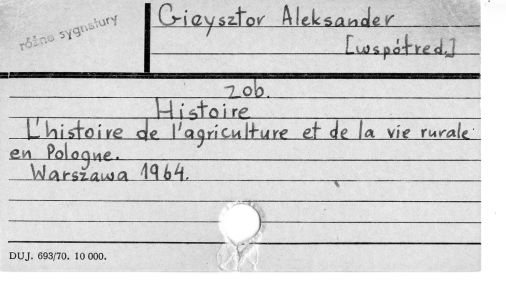 różne sygnatury
Gieysztor Aleksander
[współred.]
zob.
Histoire
L'histoire de l'agriculture et de la vie rurale
en Pologne.
Warszawa 1964.
DUJ. 693/70. 10 000.